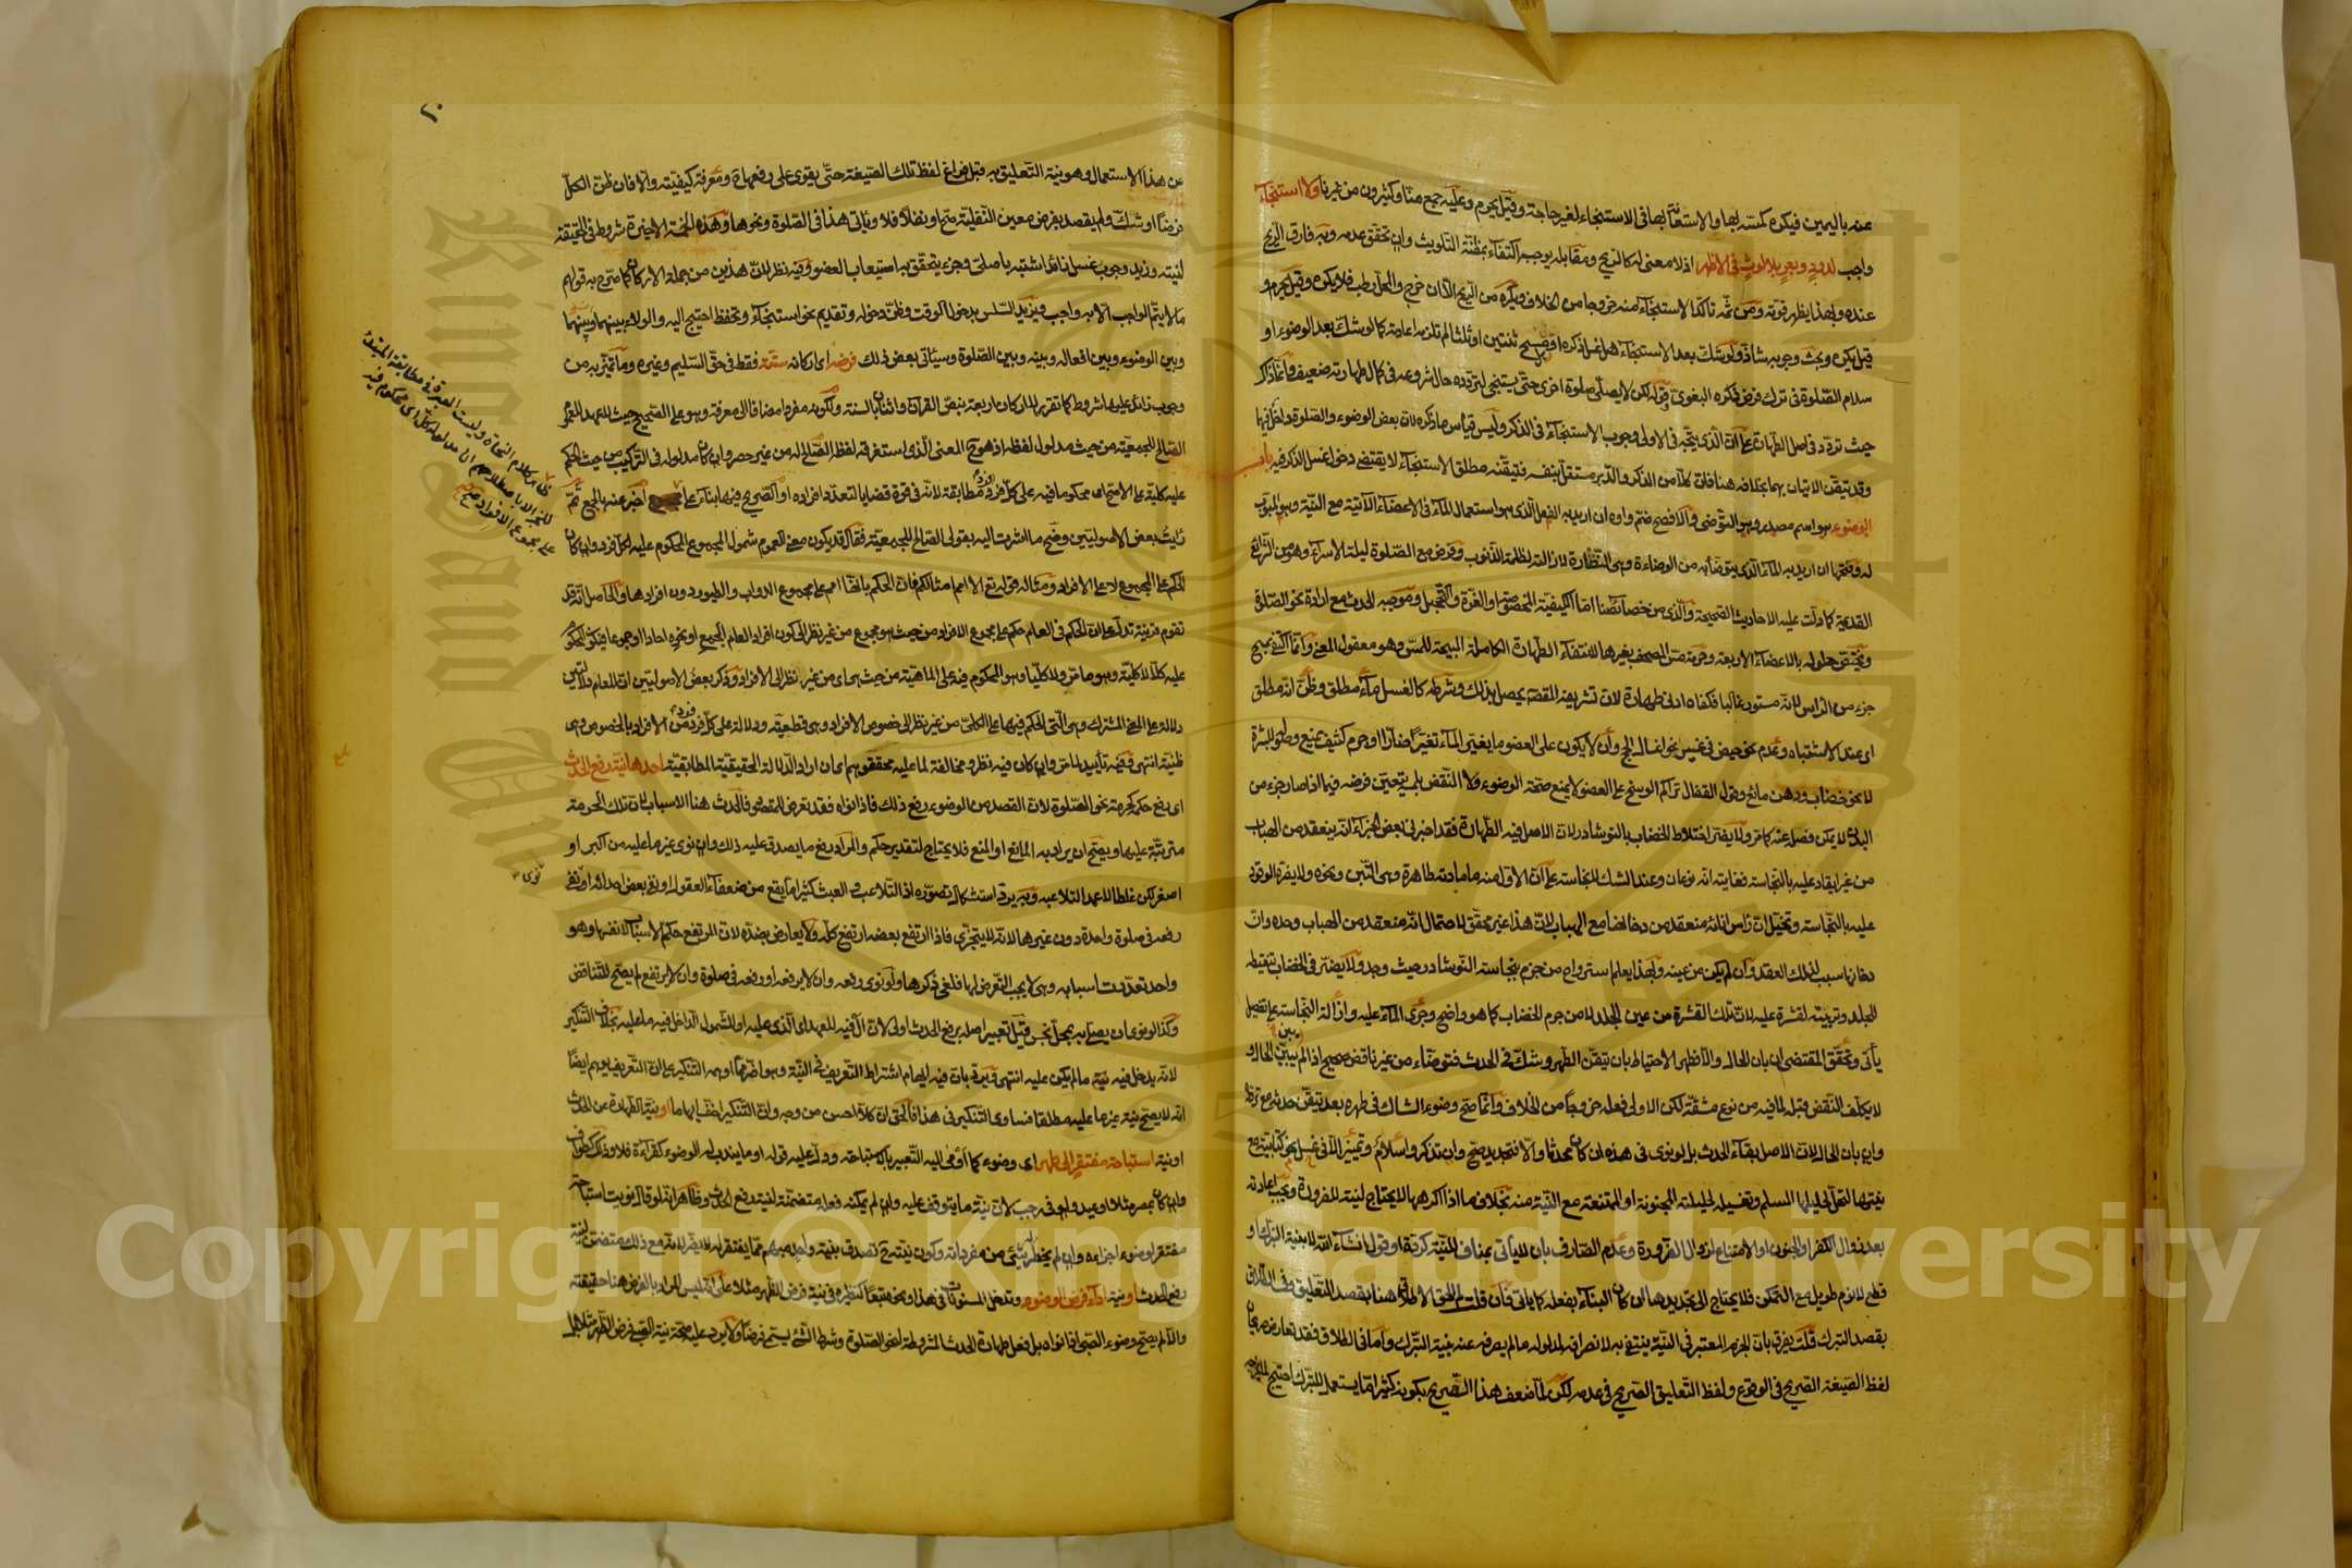 عنه باليمين فيكره مسه بها والاستعانة بها في الاستنجاء لغير حاجة وقيل يحرم وعليه جمع منا وكثيرون من غيرنا ولا استنجاء
واجب لدود وبعر بلا لوث في الاظهر اذ لا معنى له كالريح ومقابله يوجبه اكتفاء بمظنة التلويث وان تحقق عدمه وبه فارق الريح
عنده وبهذا يظهر قوته ومن ثمه تاكد الاستنجاء منه خروجا من الخلاف ويكره من الريح الا ان خرج والمحل رطب فلا يكره وقيل يحرم و
قيل يكره وبحث وجوبه شاذ ولو شك بعد الاستنجاء هل غسل ذكره او هل مسح ثنتين او ثلثا لم تلزمه اعادته كما لو شك بعد الوضوء او
سلام الصلوة في ترك فرض ذكره البغوي وقوله لكن لا يصلي صلوة اخرى حتى يستنجي لتردده حال شروعه في كمال طهارته ضعيف وانما ذاك
حيث تردد في اصل الطهارة على ان الذي يتجه في الاولى وجوب الاستنجاء في الذكر وليس قياس ما ذكره لان بعض الوضوء والصلوة داخل فيها
وقد تيقن الاتيان بهما بخلافه هنا فان كلا من الذكر والدبر مستقل بنفسه فتيقنه مطلق الاستنجاء لا يقتضي دخول غسل الذكر فيه باب
الوضوء هو اسم مصدر وهو التوضي والافصح ضم واوه ان اريد به الفعل الذي هو استعمال الماء في الاعضاء الآتية مع النية وهو المبوب
له وفتحها ان اريد به الماء الذي يتوضأ به من الوضاءة وهي النظارة لازالته لظلمة الذنوب وفرض مع الصلوة ليلة الاسراء وهو من الشرائع
القديمة كما دلت عليه الاحاديث الصحيحة والذي من خصائصنا اما الكيفية المخصوصة او الغرة والتحجيل وموجبه الحدث مع ارادة نحو الصلوة
ويختص حلوله بالاعضاء الاربعة وحرمة مس المصحف بغيرها لانتفاء الطهارة الكاملة المبيحة للمس وهو معقول المعنى وانما اكتفي بمسح
جزء من الراس لانه مستور غالبا فكفاه ادنى طهارة لان تشريفه المقصود يحصل بذلك وشرطه كالغسل ماء مطلق وظن انه مطلق
اى عند الاشتباه وعدم نحو حيض في غير نحو اغسال الحج وان لا يكون على العضو ما يغير الماء تغيرا ضارا او جرم كثيف يمنع وصوله للبشرة
لا نحو خضاب ودهن مائع وقول القفال تراكم الوسخ على العضو لا يمنع صحة الوضوء ولا النقض بلمسه يتعين فرضه فيما اذا صار جزء من
البدن لا يمكن فصله عنه كما مر ولا يضر اختلاط الخضاب بالنوشادر لان الاصل فيه الطهارة فقد اخبرني بعض الخبراء انه ينعقد من الهباب
من غير ايقاد عليه بالنجاسة فغايته انه نوعان وعند الشك لا نجاسة على ان الاول منه ما مادته طاهرة وهى التبن ونحوه ولا يضره الوقود
عليه بالنجاسة وتخيل ان راس انائه منعقد من دخانها مع الهباب لان هذا غير محقق لاحتمال انه منعقد من الهباب وحده وان
دخانها سبب لذلك العقد وان لم يكن من عينه وبهذا يعلم استرواح من جزم بنجاسة النوشادر حيث وجد ولا يضر في الخضاب تنفيطه
للجلد وتربيته لقشرة عليه لان تلك القشرة من عين الجلد لا من جرم الخضاب كما هو واضح وجرى الماء عليه وازالة النجاسة على تفصيل
يأتي وتحقق المقتضي ان بان الحال والا فطهر الاحتياط بان تيقن الطهر وشك في الحدث فتوضأ من غير ناقض صحيح اذا لم يبين الحال و
لا يكلف النقض قبله لما فيه من نوع مشقة لكن الاولى فعله خروجا من الخلاف وانما صح وضوء الشاك في طهره بعد تيقن حدثه مع تردد
وان بان الحال لان الاصل بقاء الحدث بل لو نوى في هذه ان كان محدثا والا فتجديد صح وان تذكر واسلام وتمييز الا في غسل نحو كتابية مع
نيتها لتحل لحليلها المسلم وتغسيله لحليلته المجنونة او الممتنعة مع النية منه بخلاف ما اذا اكرهها لا يحتاج لنيته للضرورة وتجب اعادته
بعد زوال الكفر او الجنون او الامتناع لزوال الضرورة وعدم الصارف بان لا يأتي بمناف للنية كردة او قول انشاء الله لا بنية التبرك او
قطع لا نوم طويل مع التمكن فلا يحتاج الى تجديدها ان كان البناء بفعله كما ياتى فان قلت لم لحق الاطلاق هنا بقصد التعليق وفي الطلاق
بقصد التبرك قلت يفرق بان الجزم المعتبر في النية ينتفي به لانصرافه لمدلوله ما لم يصرفه عنه بنية التبرك واما في الطلاق فقد تعارض صريحان
لفظ الصيغة الصريح في الوقوع ولفظ التعليق الصريح في عدمه لكن لما ضعف هذا الصريح بكونه كثيرا ما يستعمل للتبرك احتيج لما يخرجه
٢٠
عن هذا الاستعمال وهو نية التعليق به قبل فراغ لفظ تلك الصيغة حتى يقوى على رفعها ومعرفة كيفيته والا فان ظن الكل
فرضا او شك ولم يقصد بفرض معين النفلية صح او نفلا فلا وياتى هذا في الصلوة ونحوها وهذه الخمسة الاخيرة شروط في الحقيقة
لنيته وزيد وجوب غسل زائد اشتبه باصلي وجزء يتحقق به استيعاب العضو وفيه نظر لان هذين من جملة الاركان كما صرح به قولهم
ما لا يتم الواجب الا به واجب ويزيد السلس بدخول الوقت وظن دخوله وتقديم نحو استنجاء وتحفظ احتيج اليه والولاء بينهما وبينهما
وبين الوضوء وبين افعاله وبينه وبين الصلوة وسيأتى بعض ذلك فرضه اى اركانه ستة فقط في حق السليم وغيره وما تميز به من
وجوب زائد عليها شروط كما تقرر للاركان اربعة بنص القرآن واثنان بالسنة ولكونه مفردا مضافا الى معرفة وهو على الصحيح حيث لا عهد للعموم
الصالح للجمعية من حيث مدلول لفظه اذ هو ح المعنى الذى استغرقه لفظه الصالح له من غير حصر وان كان مدلوله في التركيب من حيث الحكم
عليه كلية على الاصح اى محكوما فيه على كل فرد فرد مطابقة لانه في قوة قضايا بتعدد افراده او التصريح فيها بناء على اخبر عنه بالجمع ثم
رايت بعض الاصوليين وضح ما اشرت اليه بقولى الصالح للجمعية فقال قد يكون معنى العموم شمول المجموع المحكوم عليه لكل فرد وان كان
الحكم على المجموع لا على الافراد ومثاله قوله تع الا امم امثالكم فان الحكم بانها امم على مجموع الدواب والطيور دون افرادها والحاصل انه قد
تقوم قرينة تدل على ان الحكم في العام حكم على مجموع الافراد من حيث هو مجموع من غير نظر الى كون افراد العام الجمع او نحوه احادا او جموعا فيكون المحكوم
عليه كلا لا كلية وهو ما مر ولا كليا وهو المحكوم فيه على الماهية من حيث هى اى من غير نظر الى الافراد وذكر بعض الاصوليين ان للعام دلالتين
دلالة على المعنى المشترك وهى التي الحكم فيها على الكلى من غير نظر الى خصوص الافراد وهى قطعية ودلالة على كل فرد فرد من الافراد بالخصوص وهى
ظنية انتهى وفيه تأييد لما مر وان كان فيه نظر ومخالفة لما عليه محققوهم اى ان اراد الدلالة الحقيقية المطابقية احدها نية رفع الحدث
اى رفع حكمه كحرمة نحو الصلوة لان القصد من الوضوء رفع ذلك فاذا نواه فقد تعرض للمقصود فالحدث هنا الاسباب لان تلك الحرمة
مترتبة عليها ويصح ان يراد به المانع او المنع فلا يحتاج لتقدير حكم والمراد رفع ما يصدق عليه ذلك وان نوى غير ما عليه من اكبر او
اصغر لكن غلطا لا عمدا لتلاعبه وبه يرد استشكال تصوره اذ التلاعب والعبث كثيرا ما يقع من ضعفاء العقول او نفى بعض احداثه او نفى
رفعه في صلوة واحدة دون غيرها لانه لا يتجزى فاذا ارتفع بعضه ارتفع كله ولا يعارض بضده لان المرتفع حكم الاسباب لا نفسها وهو
واحد تعددت اسبابه وهى لا يجب التعرض لها فلغى ذكرها ولو نوى رفعه وان لا يرفعه او رفعه في صلوة وان لا يرتفع لم يصح للتناقض
وكذا لو نوى ان يصلي به بمحل نجس قيل تعبير اصله برفع الحدث اولى لان ال فيه للعهد اى الذى عليه او للشمول الداخل فيه ما عليه بخلاف التنكير
لانه يدخل فيه نية ما لم يكن عليه انتهى ويرد بان فيه ايهام اشتراط التعريف في النية وهو اضر مما اوهمه التنكير على ان التعريف يوهم ايضا
انه لا يصح نية غير ما عليه مطلقا فساوى التنكير في هذا فالحق ان كلا احسن من وجه وان التنكير اخف ايهاما او نية الطهارة عن الحدث
او نية استباحة مفتقر الى طهر اى وضوء كما أومى اليه التعبير بالاستباحة ودل عليه قوله او ما يندب له الوضوء كقراءة فلا وذلك كطواف
وان كان بمصر مثلا او عيد ولو في رجب لان نية ما يتوقف عليه وان لم يمكنه فعله متضمنة لنية رفع الحدث وظاهر انه لو قال نويت استباحة
مفتقر لوضوء اجزاءه وان لم يخطر له شئ من مفرداته وكون نيته ح تصدق بنية واحد مبهم مما يفتقر له لا يضر لانه مع ذلك متضمن لنية
رفع الحدث او نية اداء فرض الوضوء وتدخل المسنونات في هذا ونحوه تبعا كنظيره في نية فرض الظهر مثلا على انه ليس المراد بالفرض هنا حقيقته
والا لم يصح وضوء الصبي اذا نواه بل فعل طهارة الحدث المشروطة لنحو الصلوة وشرط الشئ يسمى فرضا ولا يرد عليه صحة نية الصبي فرض الظهر مثلا
ظاهر كلام النحاة وليست العبرة في مطابقة المبتدأ
للخبر الا باصطلاحهم
على مجموع الافراد صح
نوى